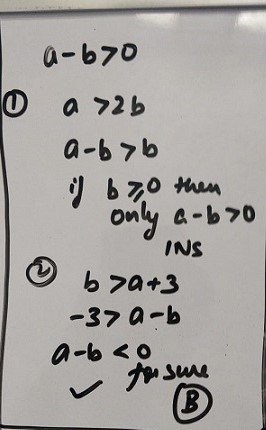 a-b>0
① a >2b
a-b>b
if b≥0 then
only a-b>0
INS
② b>a+3
-3>a-b
a-b<0
for sure
✓ Ⓑ